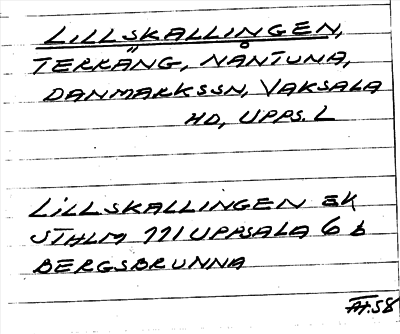 LILLSKALLINGEN,
TERRÄNG, NÅNTUNA,
DANMARKSSN, VAKSALA
HD, UPPS. L
LILLSKALLINGEN EK
STHLM 111 UPPSALA 6 b
BERGSBRUNNA